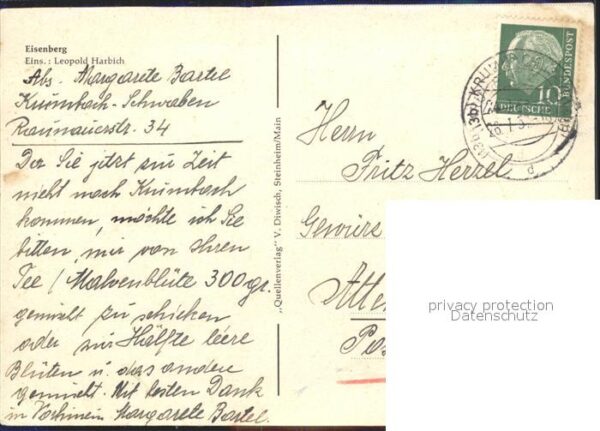 Eisenberg
Eins.: Leopold Harbich
Abs. Margarete Bartel
Krumbach-Schwaben
Raunauerstr. 34
Da Sie jetzt zur Zeit
nicht nach Krumbach
kommen, möchte ich Sie
bitten, mir von Ihren
Tee / Malvenblüte 300 gr.
gemielt zu schicken
oder zur Hälfte leere
Blüten u. das andere
gemielt. Mit besten Dank
im Vorhinein Margarete Bartel.
„Quellenverlag" V. Diwisch, Steinheim/Main
DEUTSCHE
BUNDESPOST
10
(13b) KRUMBACH
Herrn
Fritz Herzel
Gewürz
Alte
Pos
privacy protection
Datenschutz